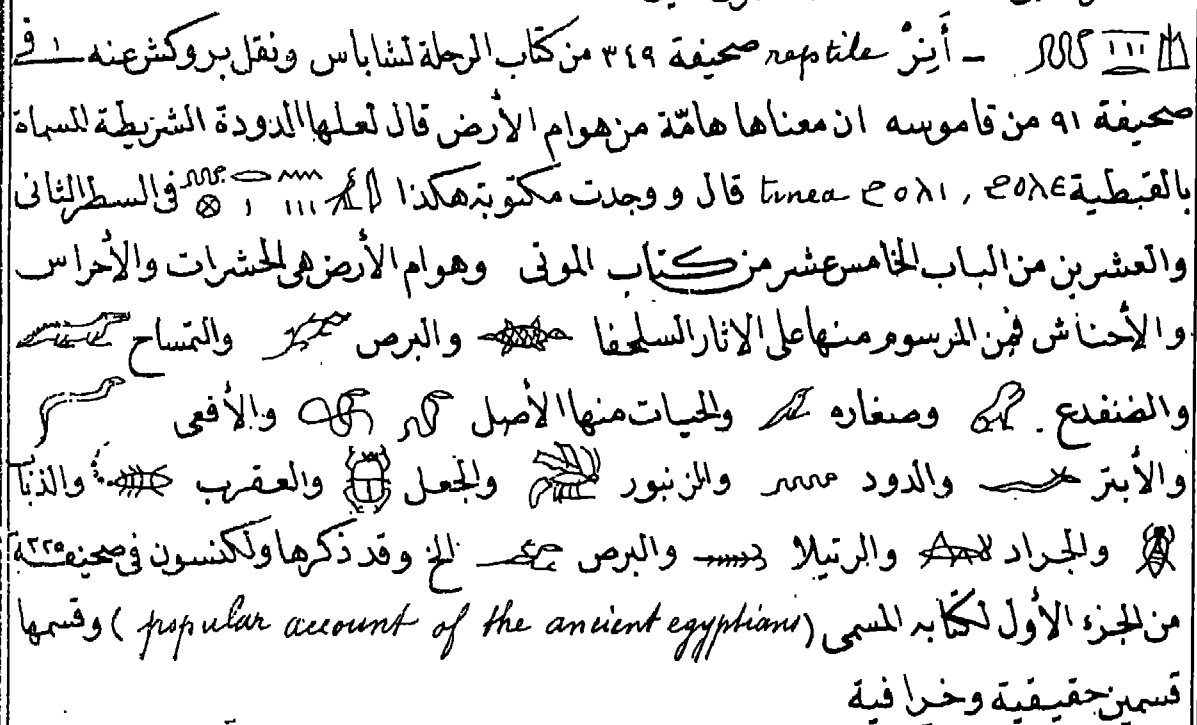 ـ أَنِرْ reptile صحيفة ٣٤٩ من كتاب الرحلة لشاباس ونقل بروكش عنه ١ فى
صحيفة ٩١ من قاموسه ان معناها هامّة من هوام الأرض قال لعلها الدودة الشريطة المسماة
بالقبطية ϩⲟⲗⲉ , ϩⲟⲗⲓ tinea قال ووجدت مكتوبة هكذا فى السطر الثانى
والعشرين من الباب الخامس عشر من كتاب الموتى وهوام الأرض هى الحشرات والأحراس
والأحناش فمن المرسوم منها على الاثار السلحفا والبرص والتمساح
والضفدع . وصغاره والحيات منها الأصل والأفعى
والأبتر والدود والزنبور والجعل والعقرب والذباب
والجراد والرتيلا والبرص الخ وقد ذكرها ولكنسون فى صحيفة ٢٢٥
من الجزء الأول لكتابه المسمى (popular account of the ancient egyptians) وقسمها
قسمين حقيقية وخرافية